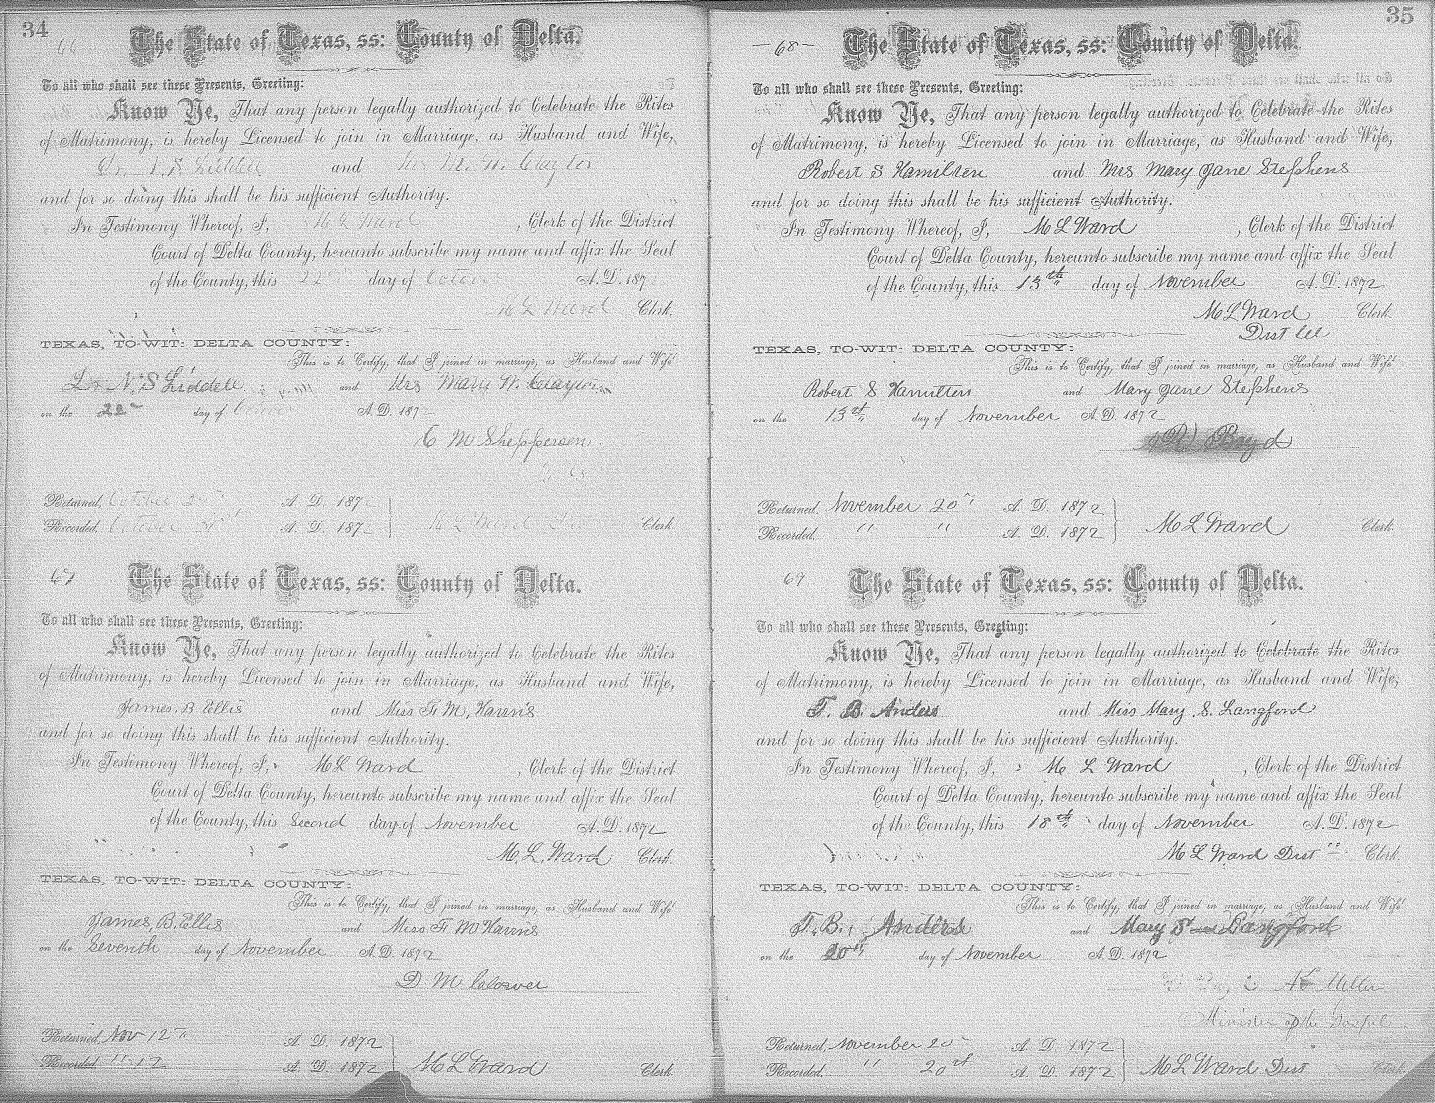 34
66
The State of Texas, ss: County of Delta.
To all who shall see these Presents, Greeting:
Know Ye, That any person legally authorized to Celebrate the Rites
of Matrimony, is hereby Licensed to join in Marriage, as Husband and Wife,
Dr. N. S. Liddell and M. W. Clayton
and for so doing this shall be his sufficient Authority.
In Testimony Whereof, I, M L Ward, Clerk of the District
Court of Delta County, hereunto subscribe my name and affix the Seal
of the County, this 22 day of October A.D. 187
M L Ward Clerk.
TEXAS, TO-WIT: DELTA COUNTY:
This is to Certify, that I joined in marriage, as Husband and Wife
Dr. N. S Liddell and Mrs Mary W. Clayton
on the 22 day of October A.D. 1872
C M Shepperson
Returned, October A. D. 187
Recorded, October A. D. 187
M L Ward Clerk
67
The State of Texas, ss: County of Delta.
To all who shall see these Presents, Greeting:
Know Ye, That any person legally authorized to Celebrate the Rites
of Matrimony, is hereby Licensed to join in Marriage, as Husband and Wife,
James. B Ellis and Miss F. M. Harris
and for so doing this shall be his sufficient Authority.
In Testimony Whereof, I, M L Ward, Clerk of the District
Court of Delta County, hereunto subscribe my name and affix the Seal
of the County, this Second day of November A.D. 1872
M. L. Ward Clerk.
TEXAS, TO-WIT: DELTA COUNTY:
This is to Certify, that I joined in marriage, as Husband and Wife
James, B. Ellis and Miss F M Harris
on the Seventh day of November A.D. 1872
D M
Returned, Nov 12 A. D. 1872
Recorded " 12 A. D. 1872
M L Ward Clerk
35
-68-
The State of Texas, ss: County of Delta.
To all who shall see these Presents, Greeting:
Know Ye, That any person legally authorized to Celebrate the Rites
of Matrimony, is hereby Licensed to join in Marriage, as Husband and Wife,
Robert S Hamilton and Mrs Mary Jane Stephens
and for so doing this shall be his sufficient Authority.
In Testimony Whereof, I, M L Ward, Clerk of the District
Court of Delta County, hereunto subscribe my name and affix the Seal
of the County, this 13th day of November A.D. 1872
M L Ward Clerk.
Dist
TEXAS, TO-WIT- DELTA COUNTY:
This is to Certify, that I joined in marriage, as Husband and Wife
Robert S Hamilton and Mary Jane Stephens
on the 13th day of November A.D. 1872
Boyd
Returned, November 20 A. D. 1872
Recorded. " " A. D. 1872
M L Ward Clerk.
69
The State of Texas, ss: County of Delta.
To all who shall see these Presents, Greeting:
Know Ye, That any person legally authorized to Celebrate the Rites
of Matrimony, is hereby Licensed to join in Marriage, as Husband and Wife,
T. B. Anders and Miss Mary S. Langford
and for so doing this shall be his sufficient Authority.
In Testimony Whereof, I, M L Ward, Clerk of the District
Court of Delta County, hereunto subscribe my name and affix the Seal
of the County, this 18th day of November A.D. 1872
M L Ward Dist Clerk.
TEXAS, TO-WIT: DELTA COUNTY:
This is to Certify, that I joined in marriage, as Husband and Wife
T. B. Anders and Mary S Langford
on the 20th day of November A.D. 1872
Miller
Minister of the Gospel
Returned, November 20 A. D. 1872
Recorded. " 20 A. D. 1872
M L Ward Dist Clerk.